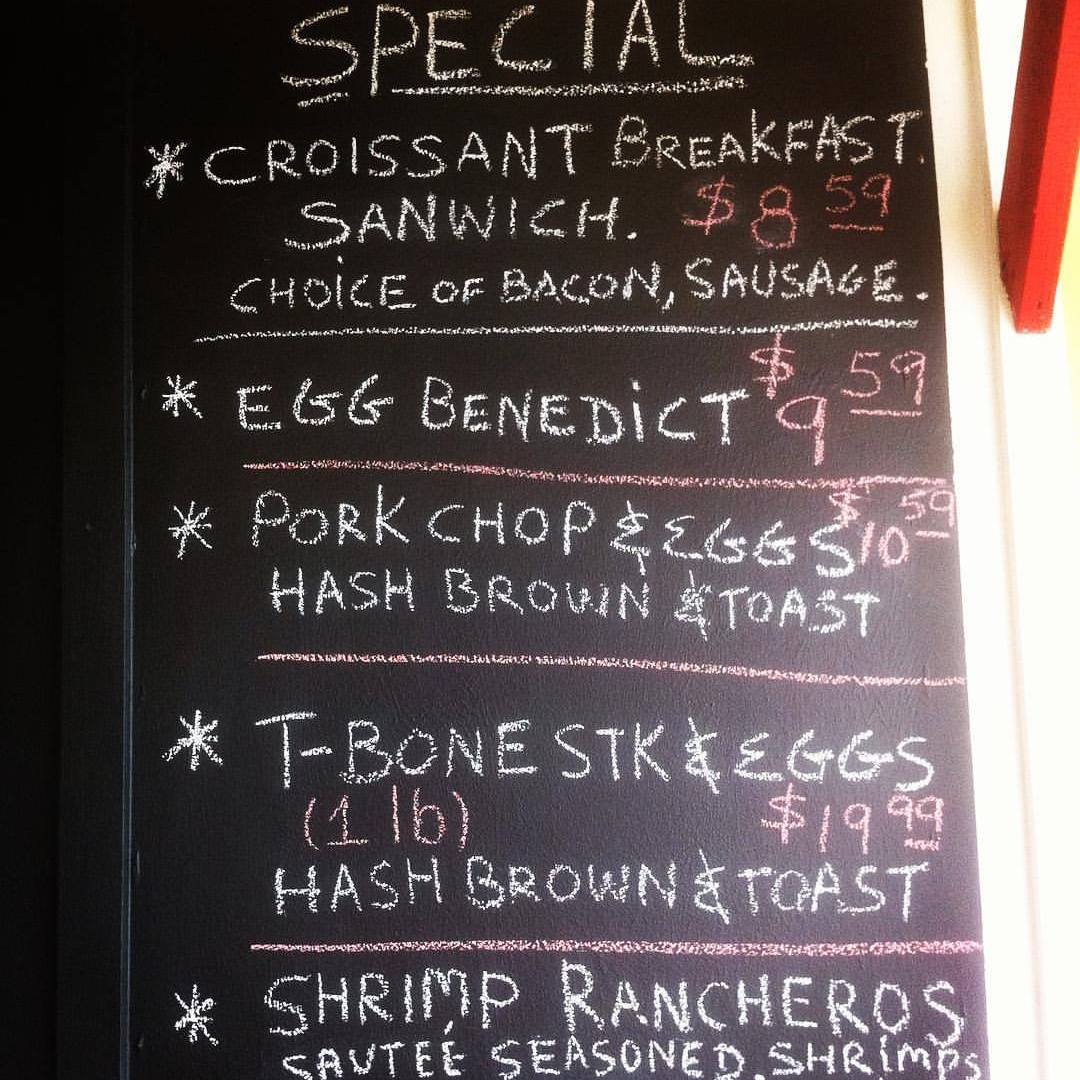 SPECIAL
* CROISSANT BREAKFAST.
SANWICH. $8 59
CHOICE OF BACON, SAUSAGE.
* EGG BENEDICT $9 59
* PORK CHOP & EGGS $10 59
HASH BROWN & TOAST
* T-BONE STK & EGGS
(1 lb) $19 99
HASH BROWN & TOAST
* SHRIMP RANCHEROS
SAUTEÉ SEASONED. SHRIMPS